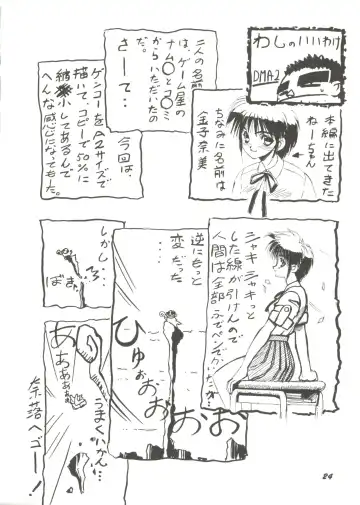 わしのいいわけ
DMA2
本編に出てきた
ねーちゃん
ちなみに名前は
金子奈美
二人の名前
は、ゲーム屋の
ナム〇とコ〇ミ
からいただいたの
だ。
さーて‥
今回は、
ゲンコーをA2サイズで
描いて、コピーで50%に
縮小してあるんで
へんな感じになってもーた。
シャキシャキっと
した線が引けんので
人間は全部ふでペンでかいたが
逆にもっと
変だった
しかし‥
ひゅおおおお
うまくいかん‥
あああああぁ
奈落へゴー!
24